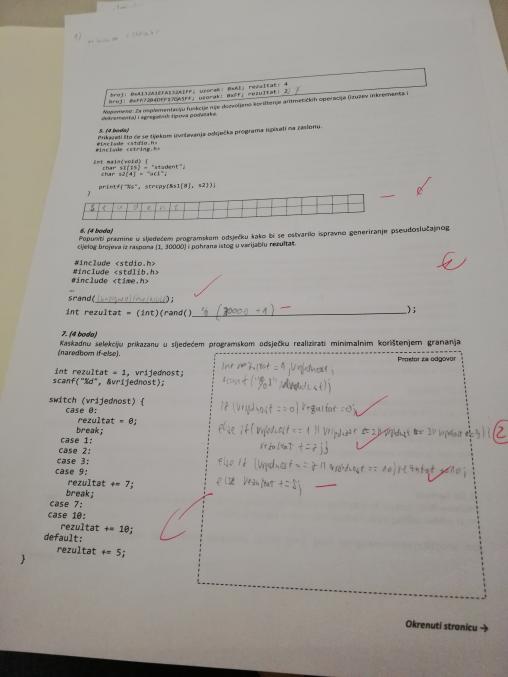 broj: 0xA132A1EFA132A1FF; uzorak: 0xA1; rezultat: 4
uzorak: 0xFF; rezultat: 2
Napomena: Za implementaciju funkcije nije dozvoljeno korištenje aritmetičkih operacija (izuzev inkrementa i
dekrementa) i agregatnih tipova podataka.
5. (4 boda)
Prikazati što će se tijekom izvršavanja odsječka programa ispisati na zaslonu.
#include <stdio.h>
#include <string.h>
int main(void) {
char s1[15] = "student";
char s2[4] = "uci";
printf("%s", strcpy(&s1[8], s2));
}
s t u d e n t
6. (4 boda)
Popuniti praznine u sljedećem programskom odsječku kako bi se ostvarilo ispravno generiranje pseudoslučajnog
cijelog brojeva iz raspona (1, 30000) i pohrana istog u varijablu rezultat.
#include <stdio.h>
#include <stdlib.h>
#include <time.h>
…
srand( );
int rezultat = (int)(rand() % (30000 +1) );
7. (4 boda)
Kaskadnu selekciju prikazanu u sljedećem programskom odsječku realizirati minimalnim korištenjem grananja
(naredbom if-else).
Prostor za odgovor
int rezultat = 1, vrijednost;
scanf("%d", &vrijednost);
switch (vrijednost) {
case 0:
rezultat = 0;
break;
case 1:
case 2:
case 3:
case 9:
rezultat += 7;
break;
case 7:
case 10:
rezultat += 10;
default:
rezultat += 5;
}
int rezultat = 1, vrijednost;
scanf("%d",
if (vrijednost == 0) rezultat =0;
else if (vrijednost == 1 || vrijednost == 2 || vrijednost
rezultat += 7;
else if (vrijednost == 7 || vrijednost == 10) rezultat
else rezultat += 5;
2
Okrenuti stranicu →